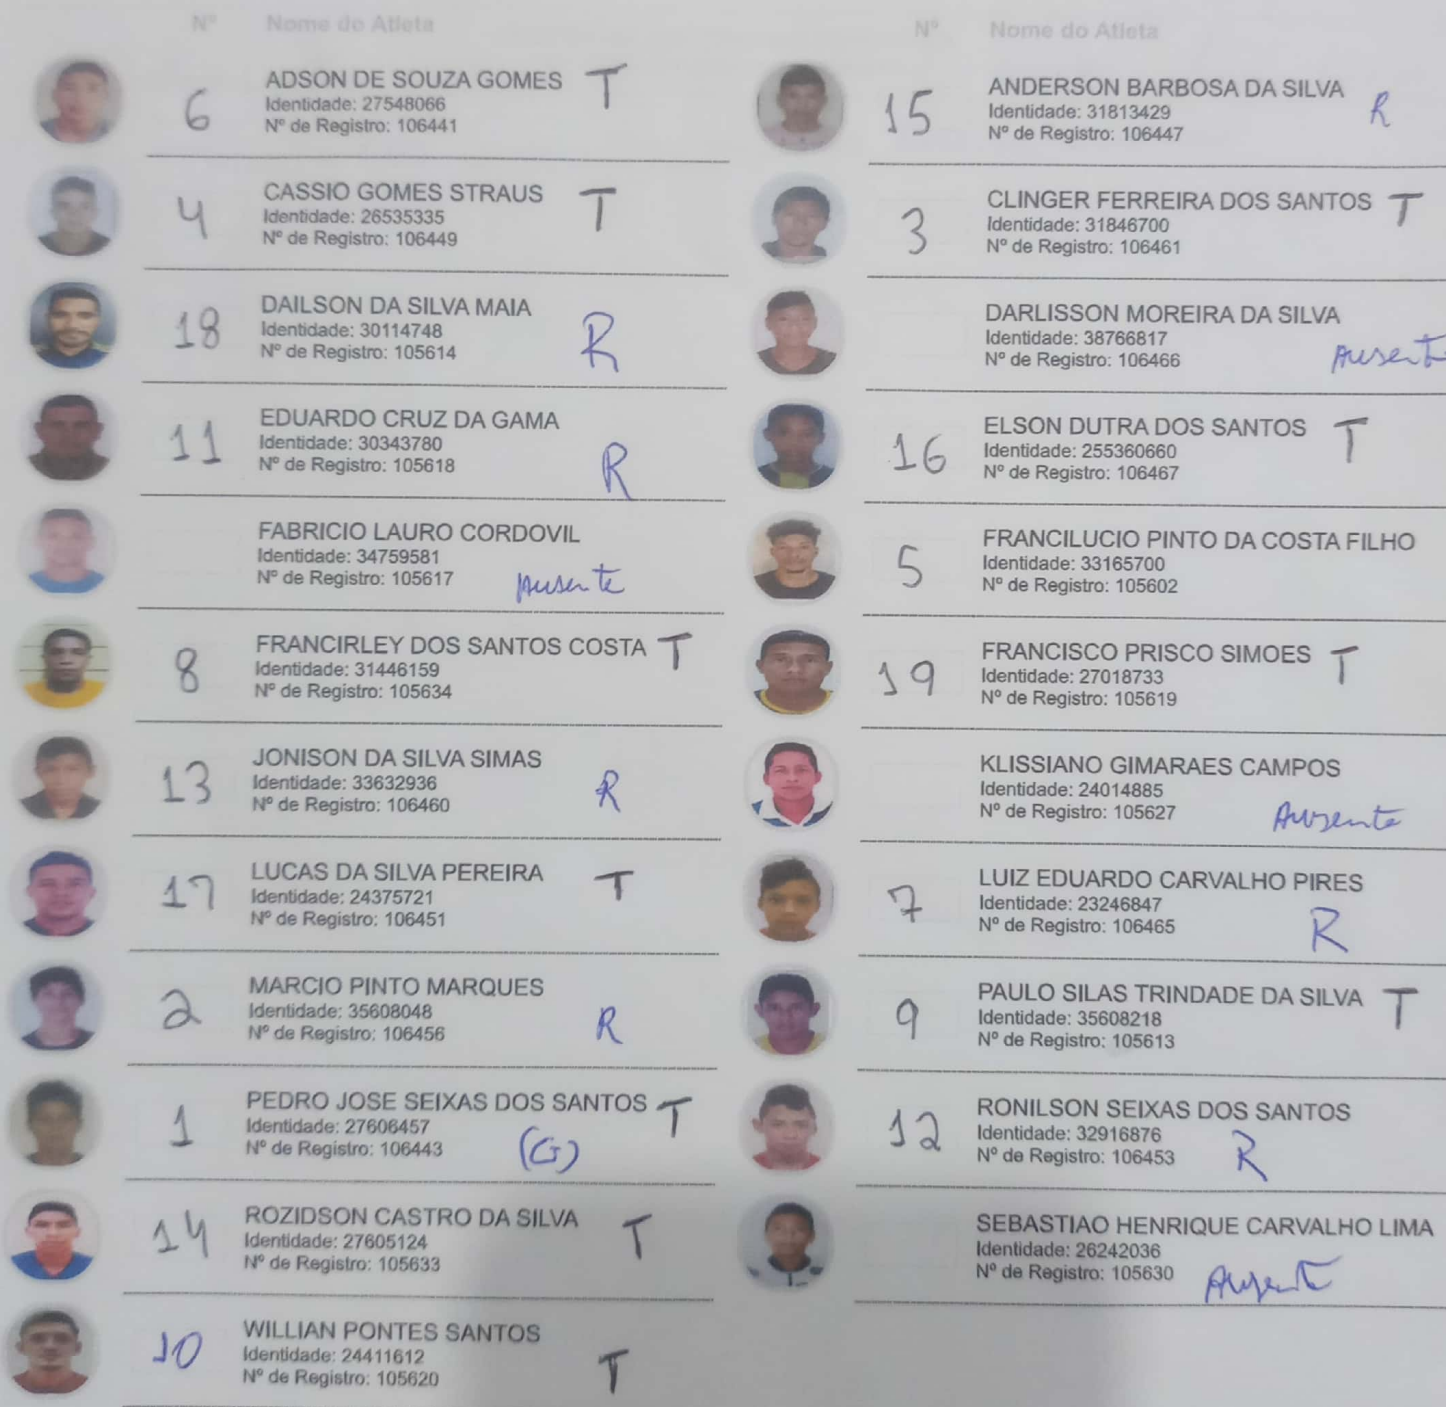 Nº Nome do Atleta
6 ADSON DE SOUZA GOMES T
Identidade: 27548066
Nº de Registro: 106441
4 CASSIO GOMES STRAUS T
Identidade: 26535335
Nº de Registro: 106449
18 DAILSON DA SILVA MAIA R
Identidade: 30114748
Nº de Registro: 105614
11 EDUARDO CRUZ DA GAMA R
Identidade: 30343780
Nº de Registro: 105618
FABRICIO LAURO CORDOVIL
Identidade: 34759581
Nº de Registro: 105617 Ausente
8 FRANCIRLEY DOS SANTOS COSTA T
Identidade: 31446159
Nº de Registro: 105634
13 JONISON DA SILVA SIMAS R
Identidade: 33632936
Nº de Registro: 106460
17 LUCAS DA SILVA PEREIRA T
Identidade: 24375721
Nº de Registro: 106451
2 MARCIO PINTO MARQUES R
Identidade: 35608048
Nº de Registro: 106456
1 PEDRO JOSE SEIXAS DOS SANTOS T
Identidade: 27606457
Nº de Registro: 106443 (G)
14 ROZIDSON CASTRO DA SILVA T
Identidade: 27605124
Nº de Registro: 105633
10 WILLIAN PONTES SANTOS T
Identidade: 24411612
Nº de Registro: 105620
Nº Nome do Atleta
15 ANDERSON BARBOSA DA SILVA R
Identidade: 31813429
Nº de Registro: 106447
3 CLINGER FERREIRA DOS SANTOS T
Identidade: 31846700
Nº de Registro: 106461
DARLISSON MOREIRA DA SILVA
Identidade: 38766817
Nº de Registro: 106466 Ausent
16 ELSON DUTRA DOS SANTOS T
Identidade: 255360660
Nº de Registro: 106467
5 FRANCILUCIO PINTO DA COSTA FILHO
Identidade: 33165700
Nº de Registro: 105602
19 FRANCISCO PRISCO SIMOES T
Identidade: 27018733
Nº de Registro: 105619
KLISSIANO GIMARAES CAMPOS
Identidade: 24014885
Nº de Registro: 105627 Ausente
7 LUIZ EDUARDO CARVALHO PIRES
Identidade: 23246847
Nº de Registro: 106465 R
9 PAULO SILAS TRINDADE DA SILVA T
Identidade: 35608218
Nº de Registro: 105613
12 RONILSON SEIXAS DOS SANTOS
Identidade: 32916876
Nº de Registro: 106453 R
SEBASTIAO HENRIQUE CARVALHO LIMA
Identidade: 26242036
Nº de Registro: 105630 Ausente